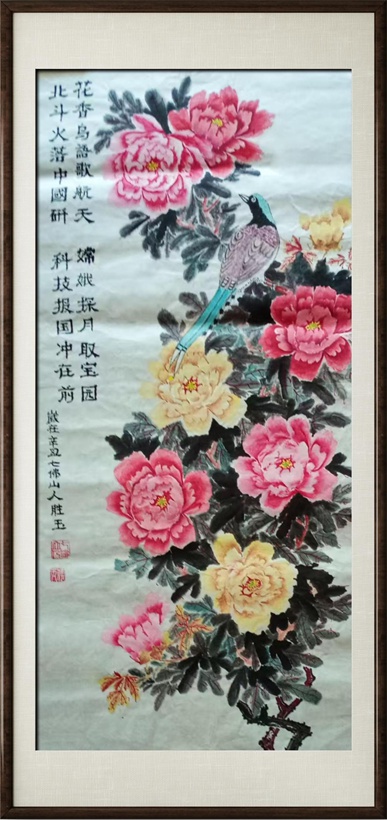 花香鸟語歌航天 嫦娥探月取宝园
北斗火箭中國研 科技报国冲在前
歲在辛丑七佛山人胜玉